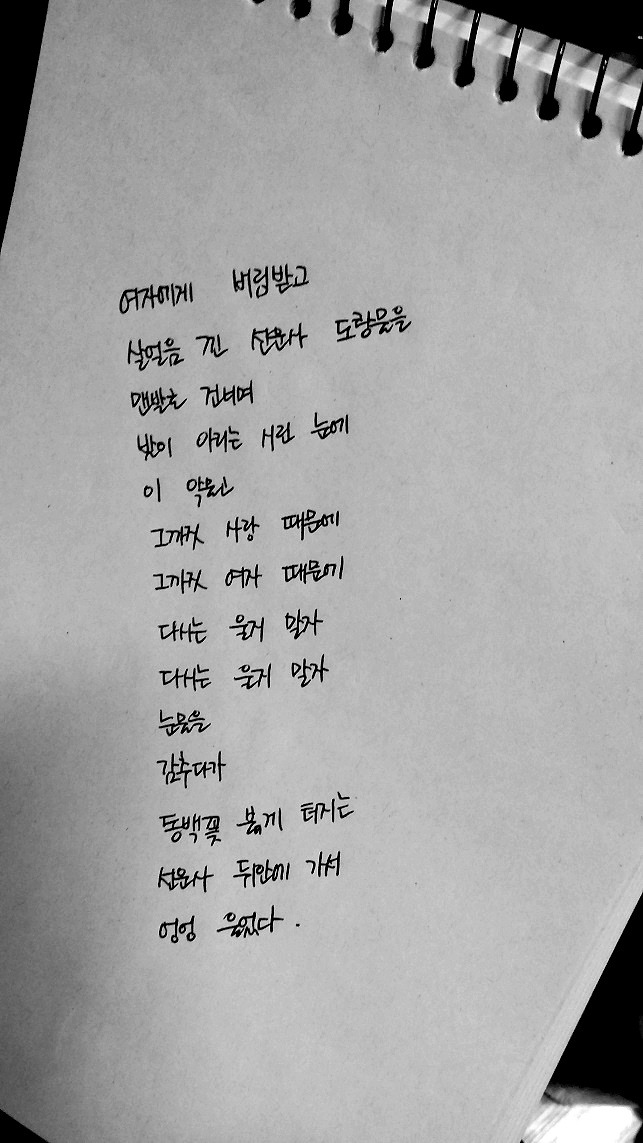 여자에게 버림받고
살얼음 낀 선운사 도랑물을
맨발로 건너며
발이 아리는 시린 눈에
이 악물고
그까짓 사랑 때문에
그까짓 여자 때문에
다시는 울지 말자
다시는 울지 말자
눈물을
감추다가
동백꽃 붉게 터지는
선운사 뒤안에 가서
엉엉 울었다.